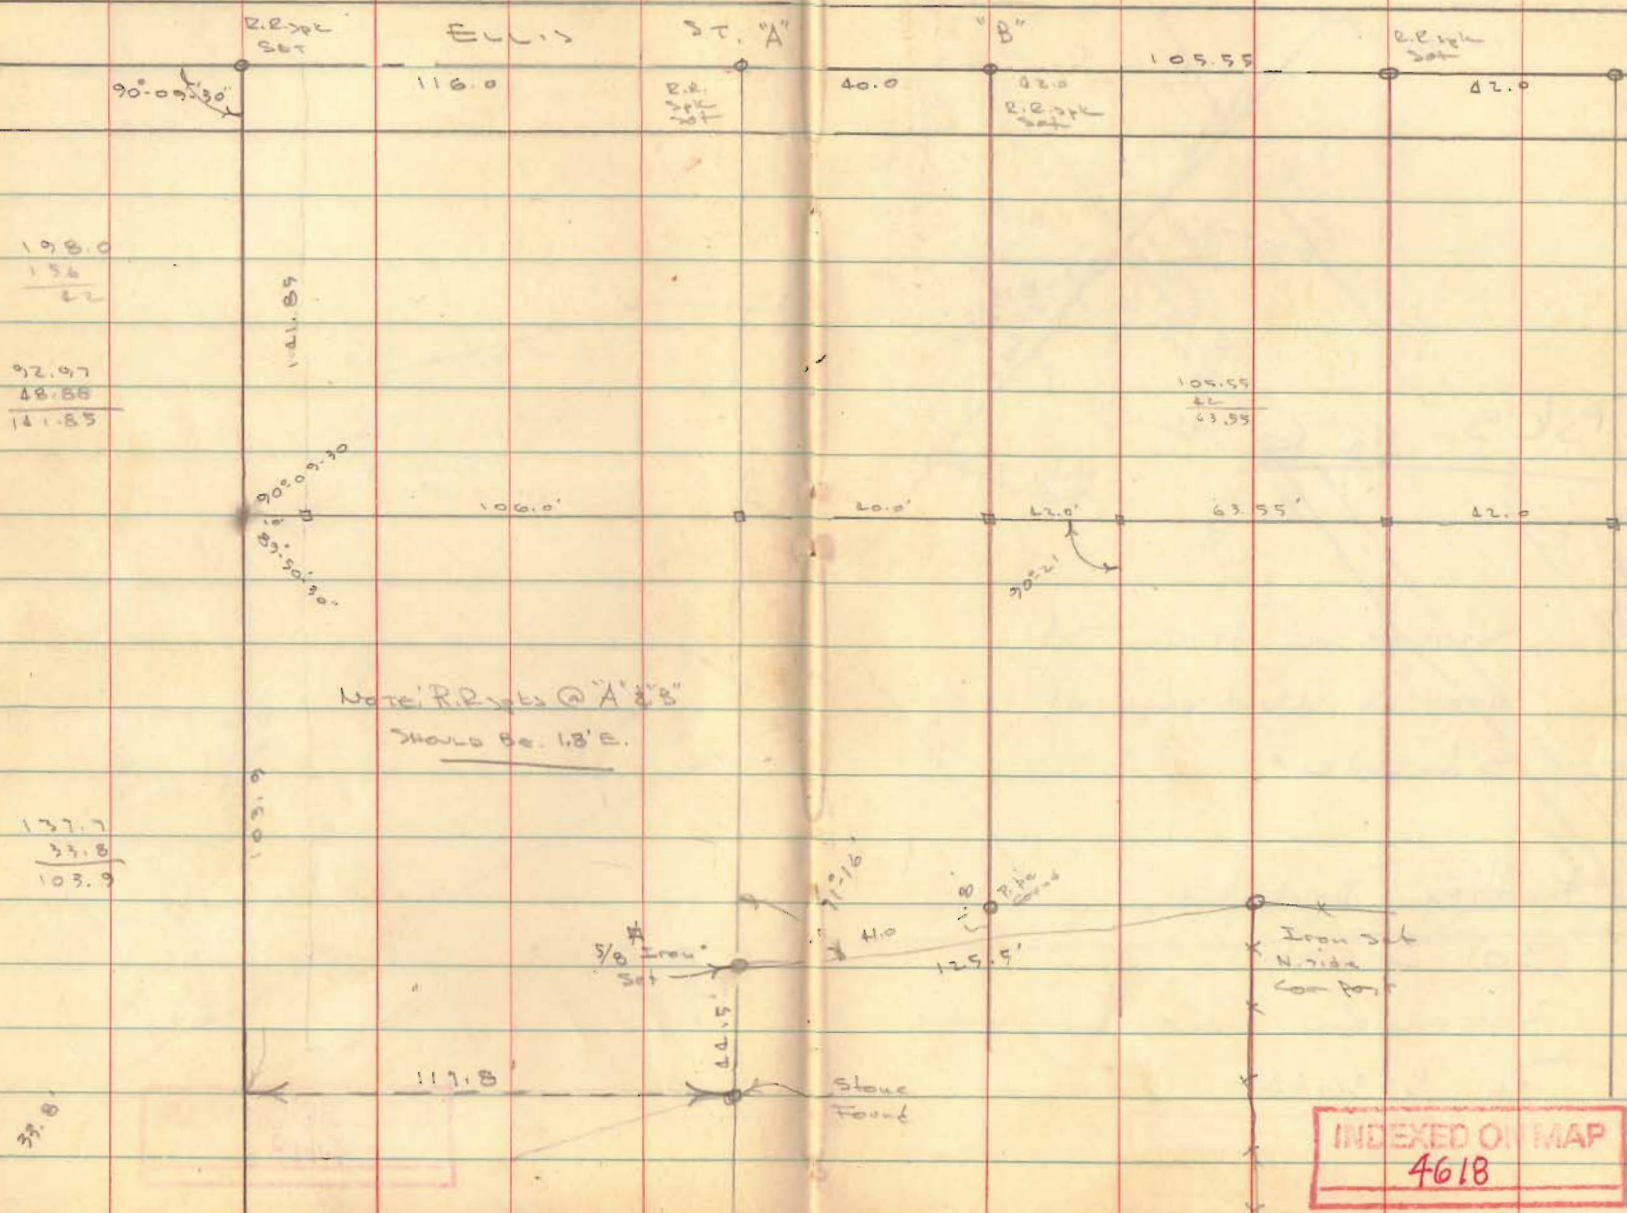 R.R. spk
SET
ELLIS
ST. "A"
"B"
R.R. spk
Set
90°-09'-30"
116.0
R.R.
spk
set
40.0
42.0
R.R. spk
Set
105.55
42.0
198.0
156
42
141.85
92.97
48.88
141.85
105.55
42
63.55
90°-09-30
89°-50'-30"
106.0'
40.0'
42.0'
63.55'
42.0
90°-21'
NOTE: R.R. spks @ "A" & "B"
SHOULD BE 1.8' E.
103.9
137.7
33.8
103.9
91°-16'
1.8'
Pipe
Found
5/8" Iron
Set
41.0
125.5'
Iron Set
N. side
Cor Post
44.5'
117.8'
Stone
Found
33.8'
INDEXED ON MAP
4618